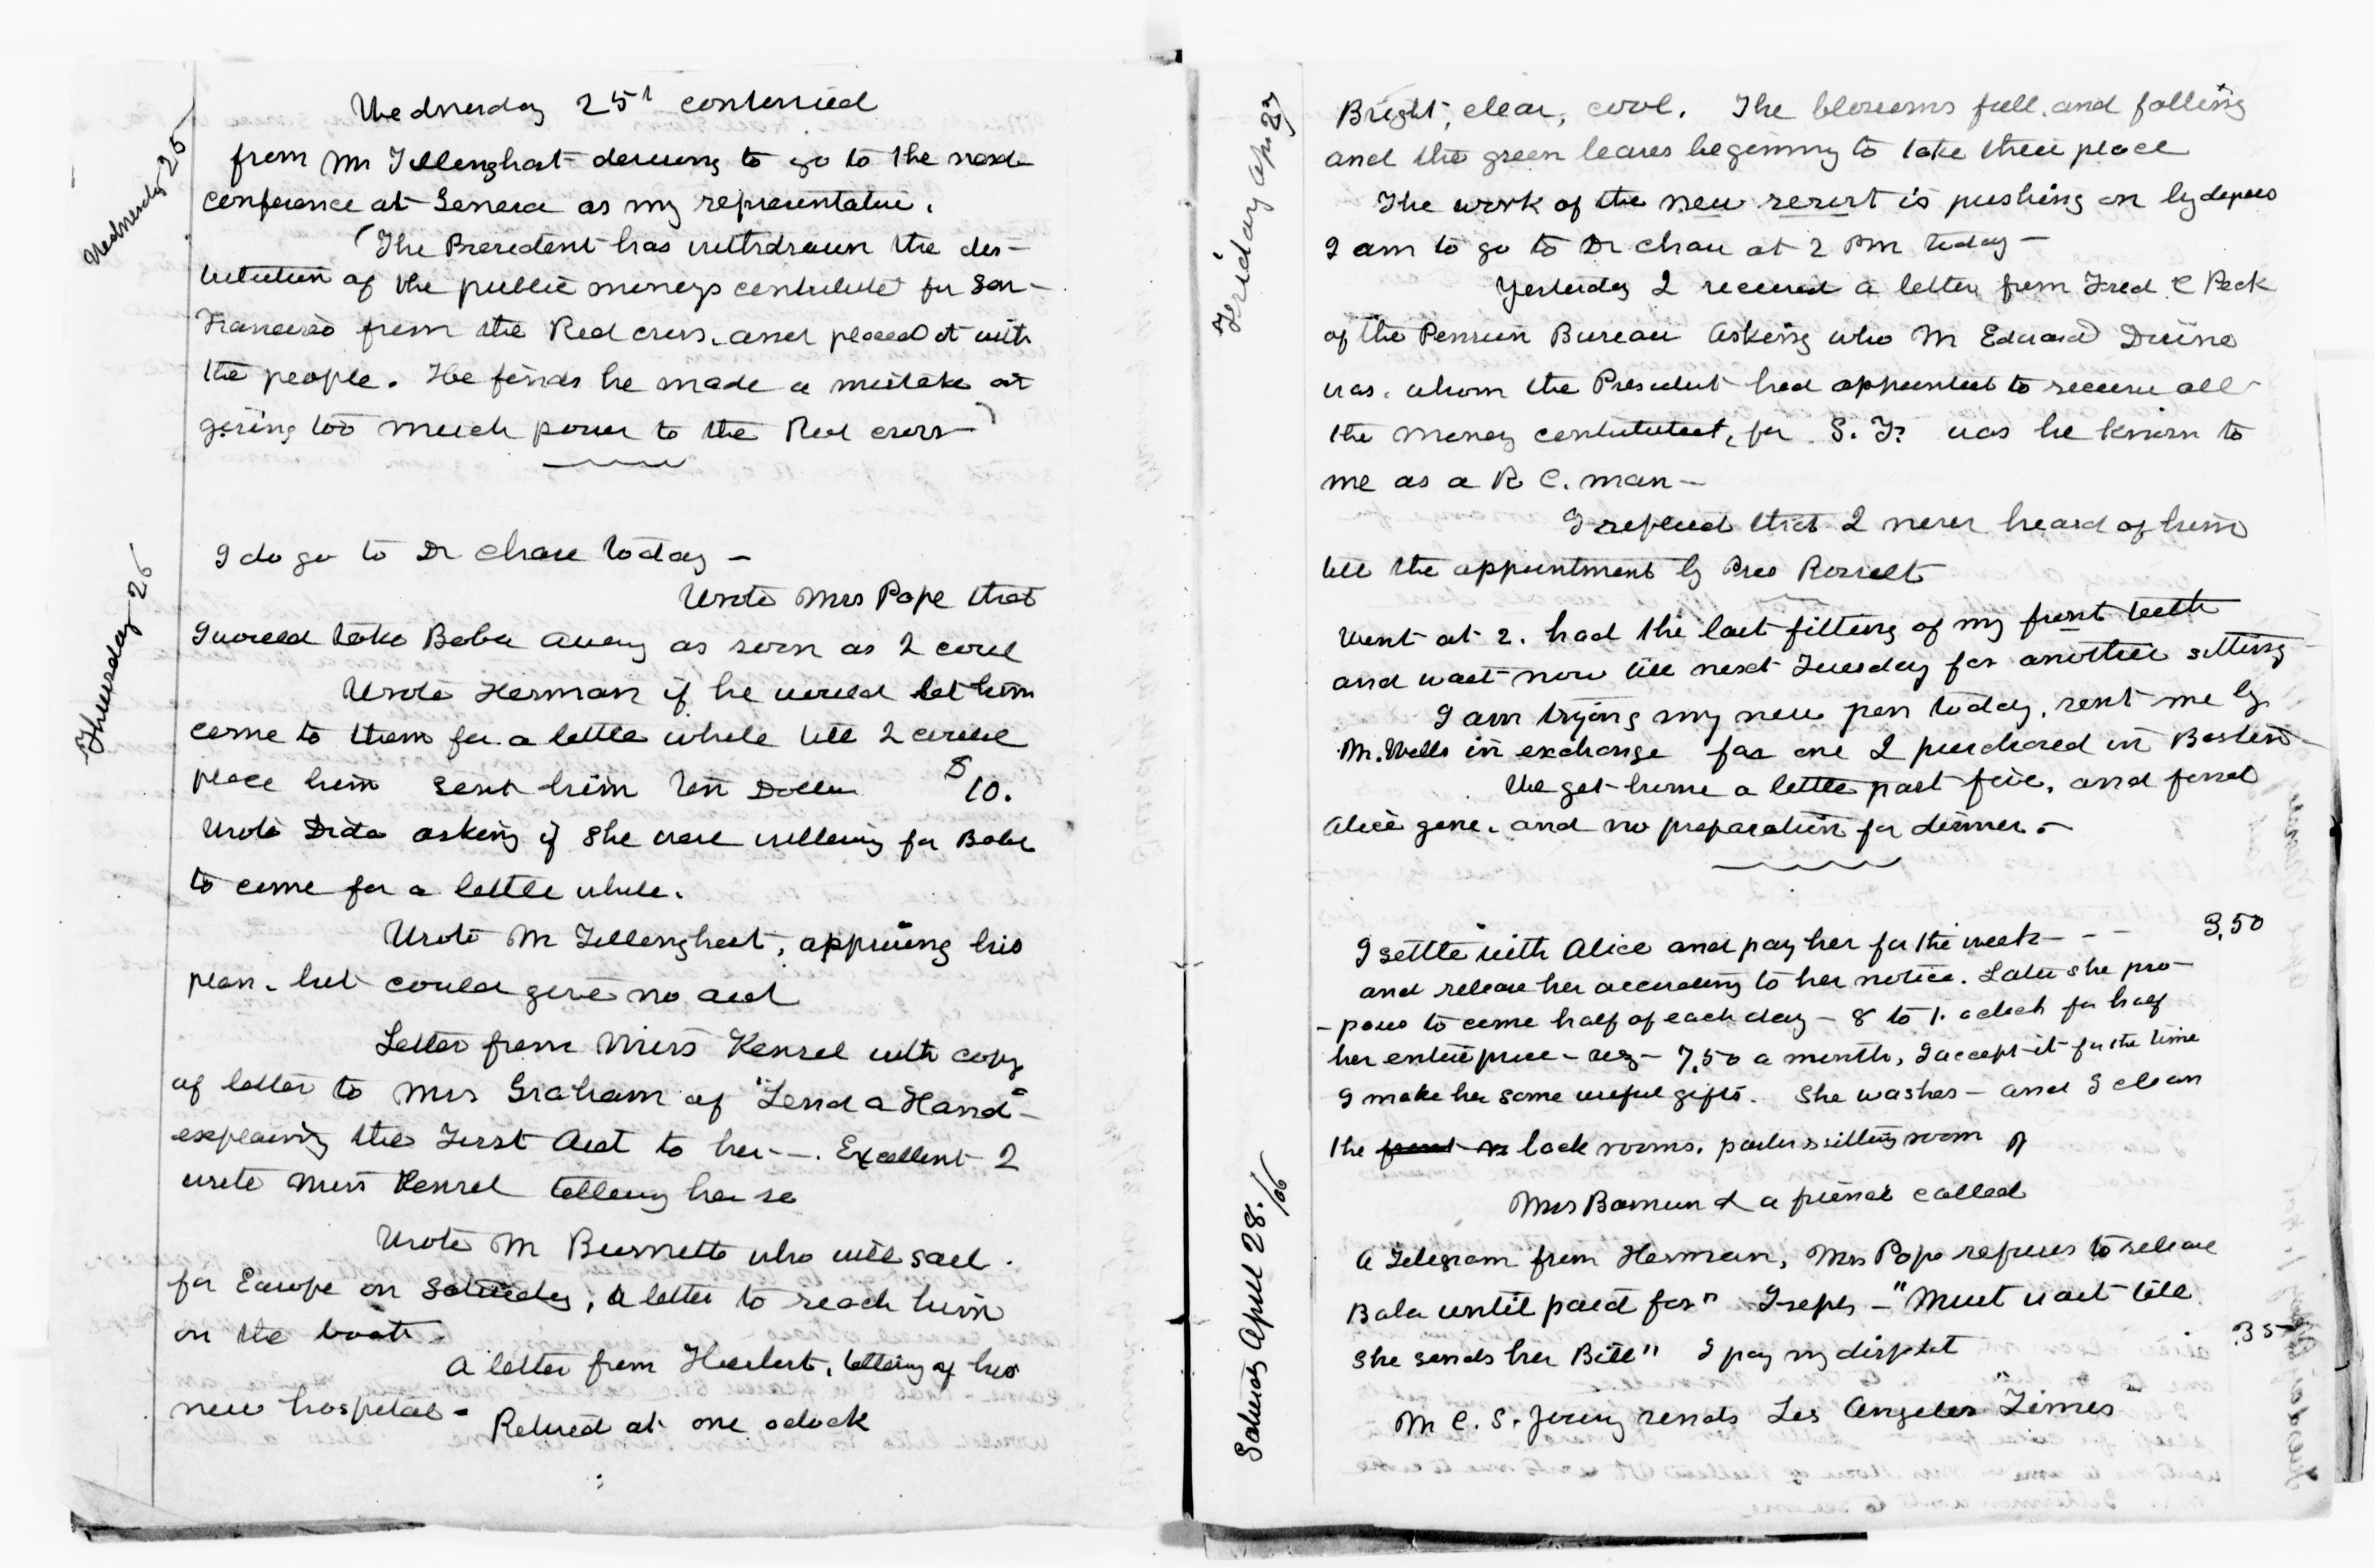 Wednesday 25
Wednesday 25t continued
from Mr Tillinghast desiring to go to the next
conference at Geneva as my representative.
(The President has withdrawn the dis-
tribution of the public moneys contributed for San-
Francisco from the Red cross, and placed it with
the people. He finds he made a mistake at
giving too much power to the Red cross)
Thursday 26
I do go to Dr Chase today –
Wrote Mrs Pope that
I would take Baba away as soon as I could
Wrote Herman if he would let him
come to them for a little while till I could
place him sent him ten Dollars $10.
Wrote Dida asking if she were willing for Baba
to come for a little while.
Wrote Mr Tillinghast, approving his
plan, but could give no aid
Letter from Miss Kensel with copy
of letter to Mrs Graham of "Lend a Hand" –
explaining the First Aid to her - –. Excellent I
wrote Miss Kensel telling her so
Wrote Mr Burnette who will sail
for Europe on Saturday, a letter to reach him
on the boat.
A letter from Herbert, telling of his
new hospital – Retired at one oclock
Friday Apr 27
Bright, clear, cool. The blossoms full, and falling
and the green leaves beginning to take their place
The work of the new resort is pushing on by degrees
I am to go to Dr Chase at 2 PM today –
Yesterday I received a letter from Fred C Peck
of the Pension Bureau asking who Mr Edward Devine
was, whom the President had appointed to receive all
the money contributed, for S. F. was he known to
me as a R C. man –
I replied that I never heard of him
till the appointment by Pres Rosvelt
Went at 2. had the last fitting of my front teeth
and wait now till next Tuesday for another sitting
I am trying my new pen today, sent me by
Mr. Wells in exchange for one I purchased in Boston –
We get home a little past five, and found
Alice gone, and no preparation for dinner. –
Saturday April 28. /06
I settle with Alice and pay her for the week – - – 3,50
and release her according to her notice. Later she pro-
- poses to come half of each day – 8 to 1. oclock for half
her entire price – viz – 7,50 a month, I accept it for the time
I make her some useful gifts. She washes – and I clean
the front rs back rooms, parlor & sitting room
Mrs Bamun & a friend called
A Telegram from Herman, Mrs Pope refuses to release
Baba until paid for" I reply – "Must wait till
she sends her Bill" I pay my dispatch .35
Mr C. S. Young sends Los Angeles "Times"